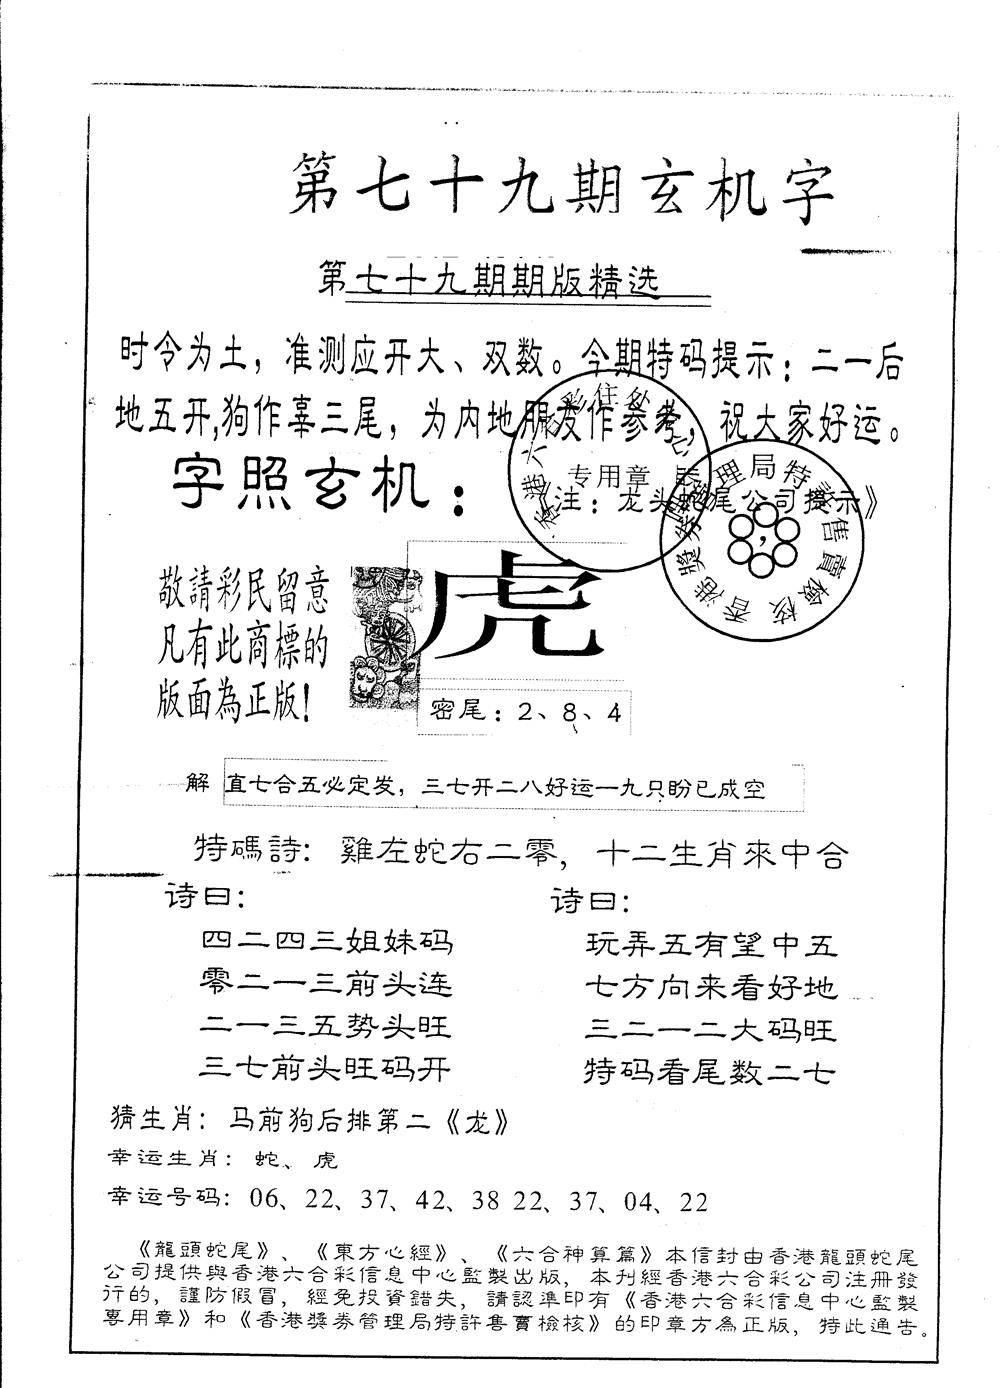 第七十九期玄机字
第七十九期期版精选
时令为土，准测应开大、双数。今期特码提示：二一后
地五开,狗作辜三尾，为内地朋友作参考，祝大家好运。
字照玄机：
注：龙头蛇尾公司提示》
专用章
香港獎券管理局特許售賣檢核
敬請彩民留意
凡有此商標的
版面為正版！
虎
密尾：2、8、4
解 直七合五必定发，三七开二八好运一九只盼已成空
特碼詩：雞左蛇右二零，十二生肖來中合
诗曰：
四二四三姐妹码
零二一三前头连
二一三五势头旺
三七前头旺码开
诗曰：
玩弄五有望中五
七方向来看好地
三二一二大码旺
特码看尾数二七
猜生肖：马前狗后排第二《龙》
幸运生肖：蛇、虎
幸运号码：06、22、37、42、38 22、37、04、22
《龍頭蛇尾》、《東方心經》、《六合神算篇》本信封由香港龍頭蛇尾
公司提供與香港六合彩信息中心監製出版，本刊經香港六合彩公司注冊發
行的，謹防假冒，經免投資錯失，請認準印有《香港六合彩信息中心監製
專用章》和《香港獎券管理局特許售賣檢核》的印章方為正版，特此通告。